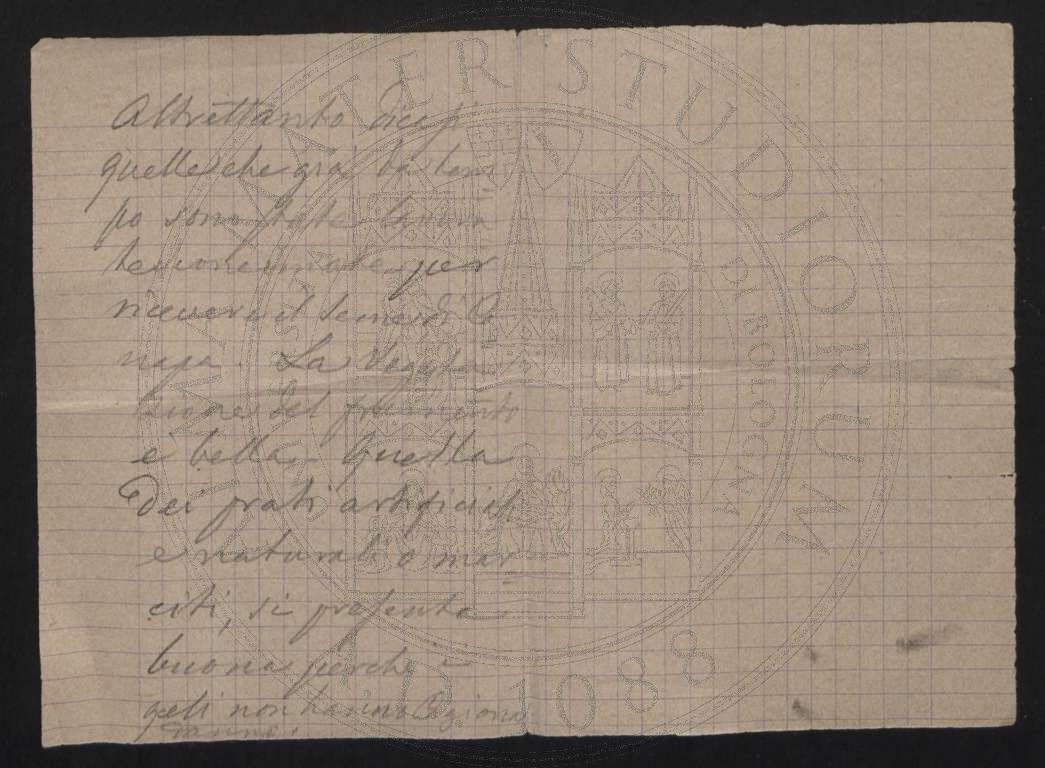 Altrettanto dicasi
quelle che già da tem
po sono state lavora
te concimate per
ricevere il seme di Ca
napa. La Vegeta
zione del frumento
è bella. Quella
dei prati artificiali
e naturali o mar
citi, si presenta
buona perche i
geli non hanno
ALMA MATER STUDIORUM
A.D. 1088